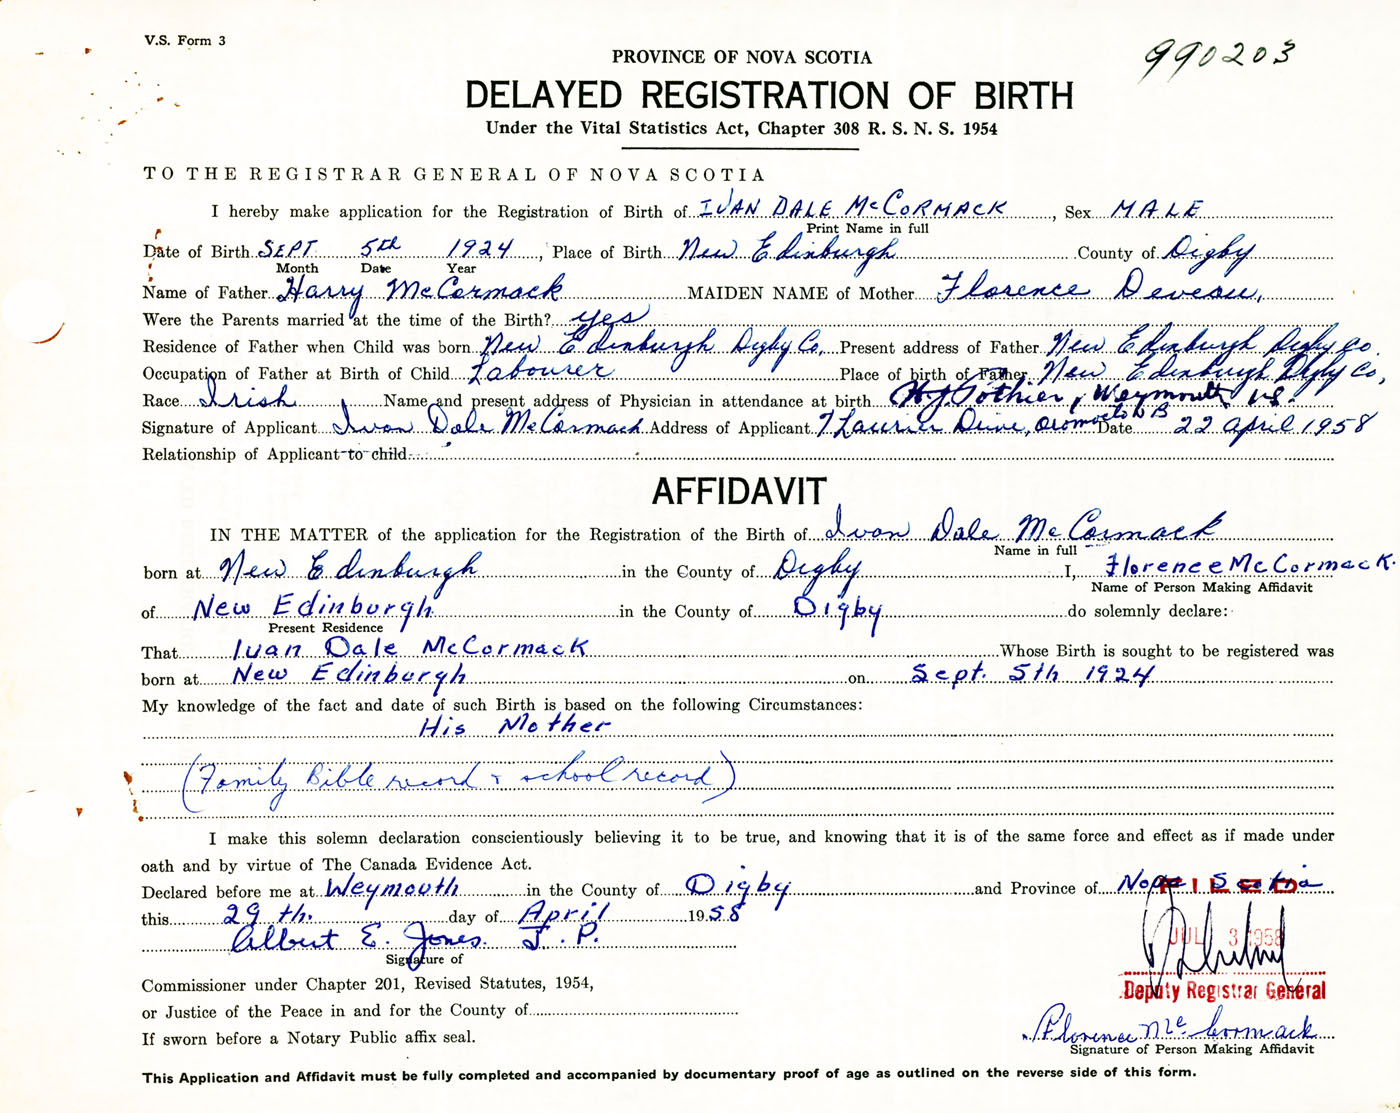 V.S. Form 3
990203
PROVINCE OF NOVA SCOTIA
DELAYED REGISTRATION OF BIRTH
Under the Vital Statistics Act, Chapter 308 R. S. N. S. 1954
TO THE REGISTRAR GENERAL OF NOVA SCOTIA
I hereby make application for the Registration of Birth of IVAN DALE McCORMACK, Sex MALE
Print Name in full
Date of Birth SEPT 5th 1924, Place of Birth New Edinburgh County of Digby
Month Date Year
Name of Father Harry McCormack MAIDEN NAME of Mother Florence Deveau,
Were the Parents married at the time of the Birth? yes
Residence of Father when Child was born New Edinburgh Digby Co, Present address of Father New Edinburgh Digby Co.
Occupation of Father at Birth of Child Labourer Place of birth of Father New Edinburgh Digby Co,
Race Irish Name and present address of Physician in attendance at birth H.J. Pothier, Weymouth N.S.
Signature of Applicant Ivan Dale McCormack Address of Applicant 7 Laurier Drive, Oromocto NB Date 22 april 1958
Relationship of Applicant to child
AFFIDAVIT
IN THE MATTER of the application for the Registration of the Birth of Ivan Dale McCormack
Name in full
born at New Edinburgh in the County of Digby I, Florence McCormack.
Name of Person Making Affidavit
of New Edinburgh in the County of Digby do solemnly declare:
Present Residence
That Ivan Dale McCormack Whose Birth is sought to be registered was
born at New Edinburgh on Sept. 5th 1924
My knowledge of the fact and date of such Birth is based on the following Circumstances:
His Mother
(Family Bible record & school record)
I make this solemn declaration conscientiously believing it to be true, and knowing that it is of the same force and effect as if made under
oath and by virtue of The Canada Evidence Act.
Declared before me at Weymouth in the County of Digby and Province of Nova Scotia
FILED
this 29th. day of April 1958
JUL 3 1958
Albert E. Jones. J.P.
Signature of
Commissioner under Chapter 201, Revised Statutes, 1954,
Deputy Registrar General
or Justice of the Peace in and for the County of
Florence McCormack
If sworn before a Notary Public affix seal.
Signature of Person Making Affidavit
This Application and Affidavit must be fully completed and accompanied by documentary proof of age as outlined on the reverse side of this form.